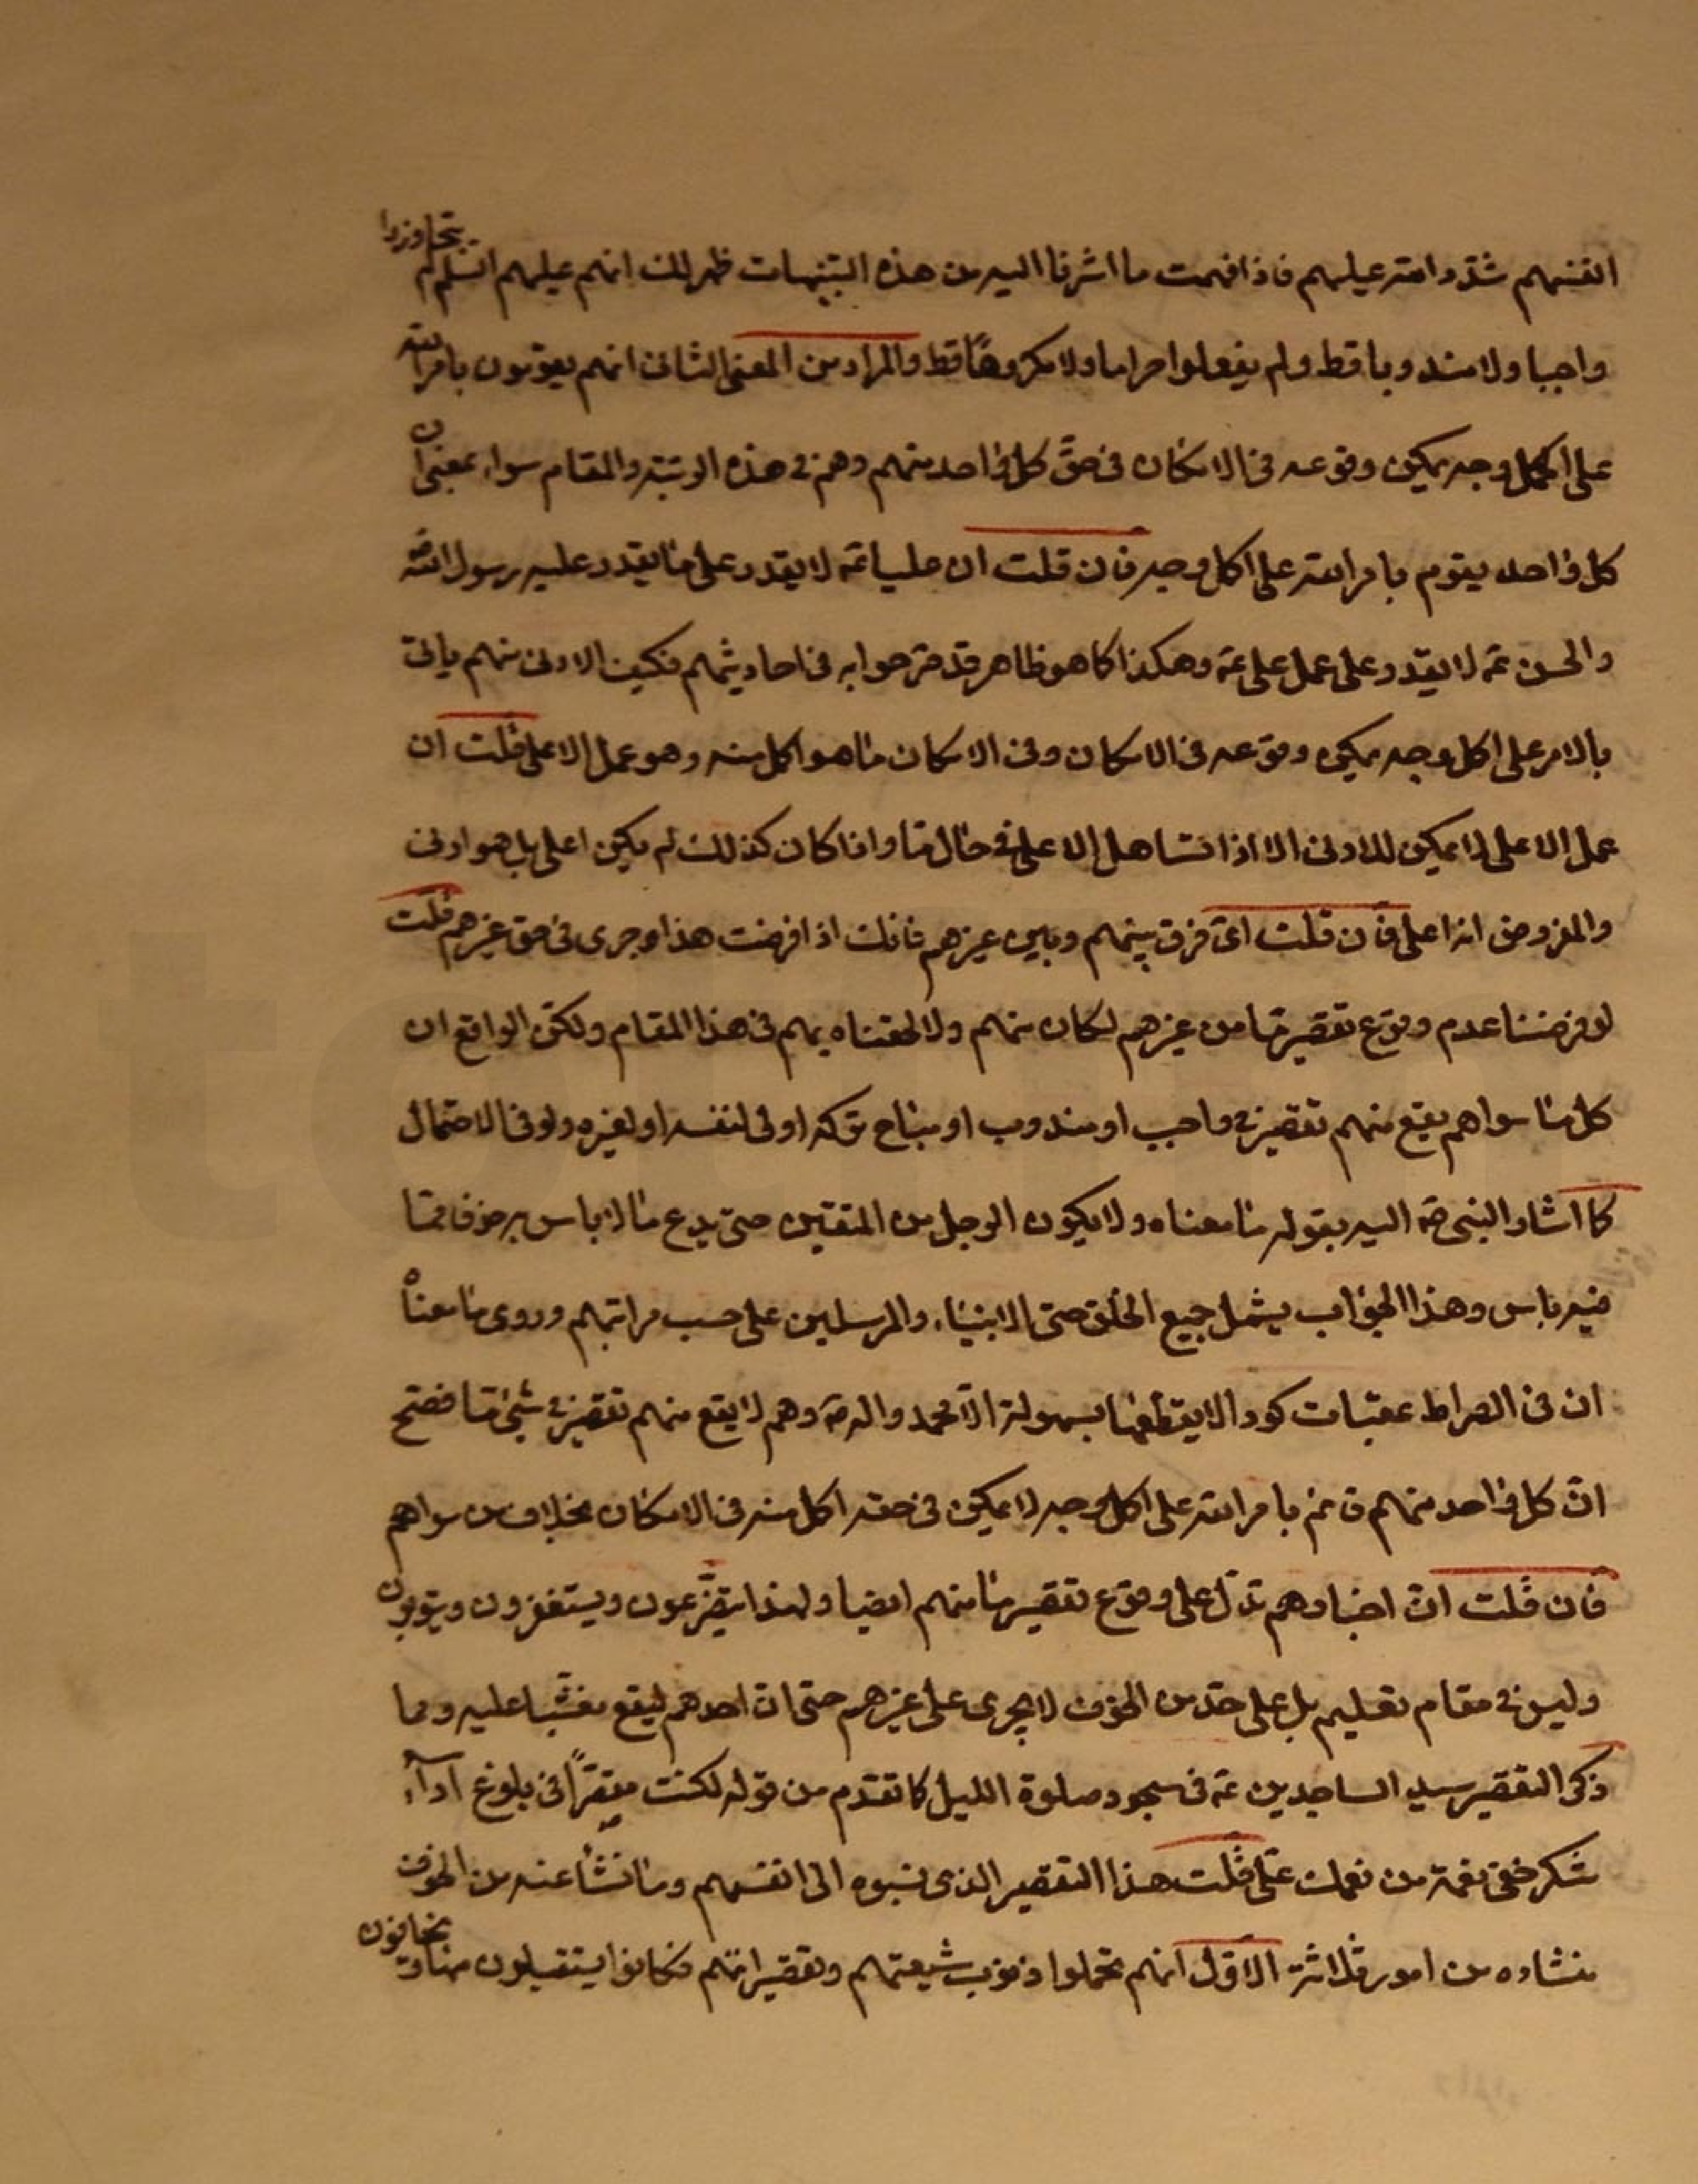 انفسهم شدد الله عليهم فاذا فهمت ما اشرنا اليه من هذه التنبيهات ظهر لك انهم عليهم السلم لم يتجاوزوا
واجبا ولا مندوبا قط ولم يفعلوا حراما ولا مكروها قط والمراد من المعنى الثانى انهم يقومون بامر الله
على اكمل وجه يمكن وقوعه فى الامكان فى حق كل واحد منهم وهم فى هذه الرتبة والمقام سواء بمعنى ان
كل واحد يقوم بامر الله على اكمل وجه فان قلت ان عليا ع لا يقدر على ما يقدر عليه رسول الله ص
والحسن ع لا يقدر على عمل على ع وهكذا كما هو ظاهر قد مر جوابه فى احاديثهم فكيف الادنى منهم ياتى
بالامر على اكمل وجه يمكن وقوعه فى الامكان وفى الامكان ما هو اكمل منه وهو عمل الاعلى قلت ان
عمل الاعلى لا يمكن للادنى الا اذا تساهل الاعلى فى حال ما واذا كان كذلك لم يكن اعلى بل هو ادنى
والمفروض انه اعلى فان قلت اى فرق بينهم وبين غيرهم فانك اذا فرضت هذا جرى فى حق غيرهم قلت
لو فرضنا عدم وقوع تقصير ما من غيرهم لكان منهم ولالحقناه بهم فى هذا المقام ولكن الواقع ان
كل من سواهم يقع منهم تقصير فى واجب او مندوب او مباح تركه اولى لنفسه او لغيره ولو فى الاحتمال
كما اشار النبى ص اليه بقوله ما معناه ولا يكون الرجل من المتقين حتى يدع ما لا باس به خوفا مما
فيه باس وهذا الجواب يشمل جميع الخلق حتى الانبياء والمرسلين على حسب مراتبهم وروى ما معناه
ان فى الصراط عقبات كودا لا يقطعها بسهولة الا محمد واله ص وهم لا يقع منهم تقصير فى شىء ما فصح
ان كل واحد منهم قائم بامر الله على اكمل وجه لا يمكن فى حقه اكمل منه فى الامكان بخلاف من سواهم
فان قلت ان اخبارهم تدل على وقوع تقصير ما منهم ايضا ولهذا يتضرعون ويستغفرون ويتوبون
وليس فى مقام تعليم بل على حد من الخوف لا يجرى على غيرهم حتى ان احدهم ليقع مغشيا عليه ومما
ذكر التقصير سيد الساجدين ع فى سجود صلوة الليل كما تقدم من قوله لكنت مقصرا فى بلوغ اداء
شكر خفى نعمة من نعمك على قلت هذا التقصير الذى نسبوه الى انفسهم وما نشأ عنه من الخوف
منشاؤه من امور ثلاثة الاول انهم تحملوا ذنوب شيعتهم وتقصيراتهم فكانوا يستقيلون منها ويخافون